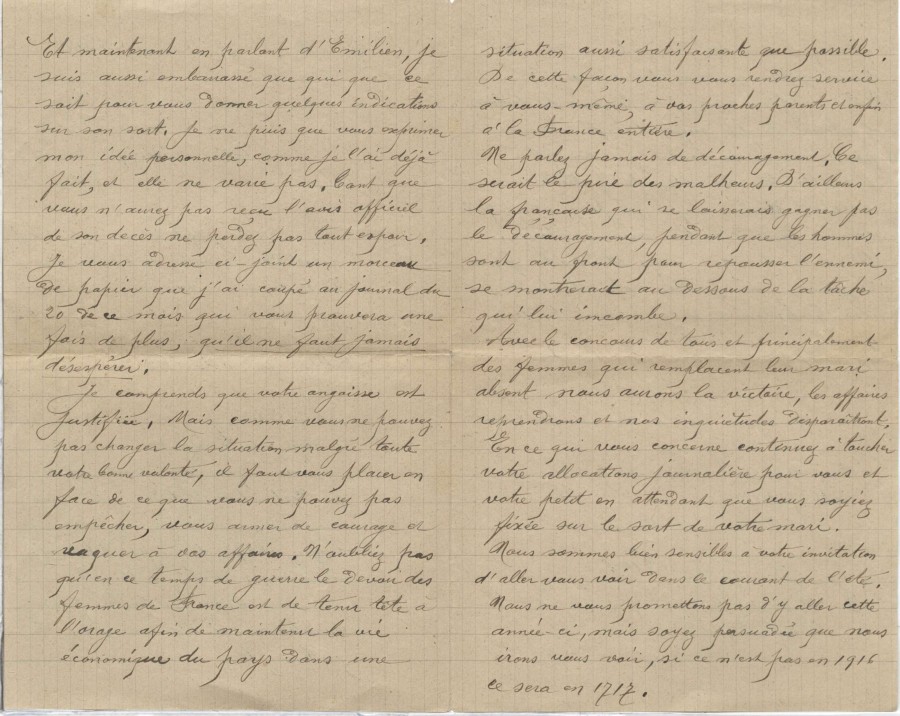 Et maintenant en parlant d'Emilien, je
suis aussi embarrassé que qui que ce
soit pour vous donner quelques indications
sur son sort. Je ne puis que vous exprimer
mon idée personnelle, comme je l'ai déjà
fait, et elle ne varie pas. Tant que
vous n'aurez pas reçu l'avis officiel
de son decès ne perdez pas tout espoir.
Je vous adresse ci-joint un morceau
de papier que j'ai coupé au journal du
20 de ce mois qui vous prouvera une
fois de plus, qu'il ne faut jamais
désespérer.
Je comprends que votre angoisse est
justifiée. Mais comme vous ne pouvez
pas changer la situation malgré toute
votre bonne volonté, il faut vous placer en
face de ce que vous ne pouvez pas
empêcher, vous armer de courage et
vaquer à vos affaires. N'oubliez pas
qu'en ce temps de guerre le devoir des
femmes de France est de tenir tête à
l'orage afin de maintenir la vie
économique du pays dans une
situation aussi satisfaisante que possible.
De cette façon vous vous rendrez service
à vous-même, à vos proches parents et enfin
à la France entière.
Ne parlez jamais de découragement. Ce
serait le pire des malheurs. D'ailleurs
la française qui se laisserais gagner pas
le découragement, pendant que les hommes
sont au front pour repousser l'ennemi,
se montrerait au dessous de la tâche
qui lui imcombe.
Avec le concours de tous et principalement
des femmes qui remplacent leur mari
absent nous aurons la victoire, les affaires
reprendrons et nos inquiétudes disparaîtront.
En ce qui vous concerne continuez à toucher
votre allocations journalière pour vous et
votre petit en attendant que vous soyiez
fixée sur le sort de votre mari.
Nous sommes bien sensibles à votre invitation
d'aller vous voir dans le courant de l'été.
Nous ne vous promettons pas d'y aller cette
année-ci, mais soyez persuadée que nous
irons vous voir, si ce n'est pas en 1916
ce sera en 1717.